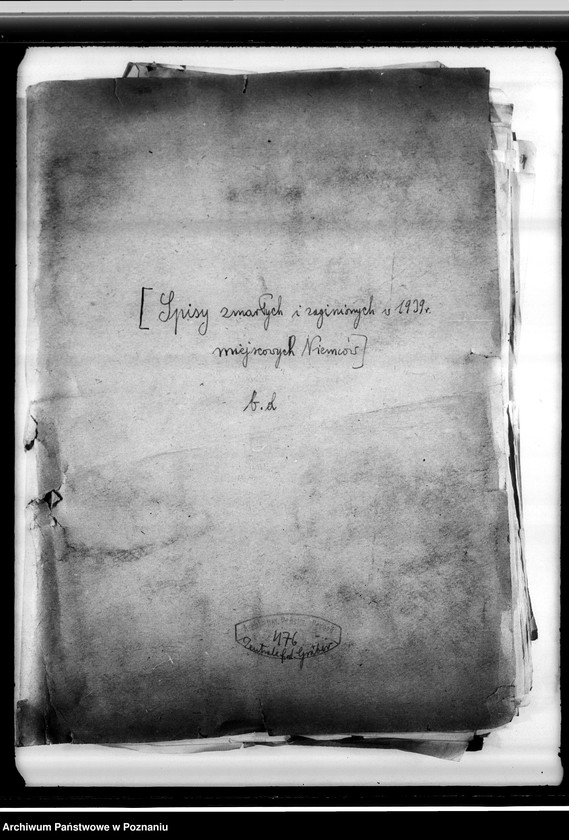 [Spisy zmarłych i zaginionych w 1939r.
miejscowych Niemców]
b.d
476
Centrale f.d. Gräber
Archiwum Państwowe w Poznaniu